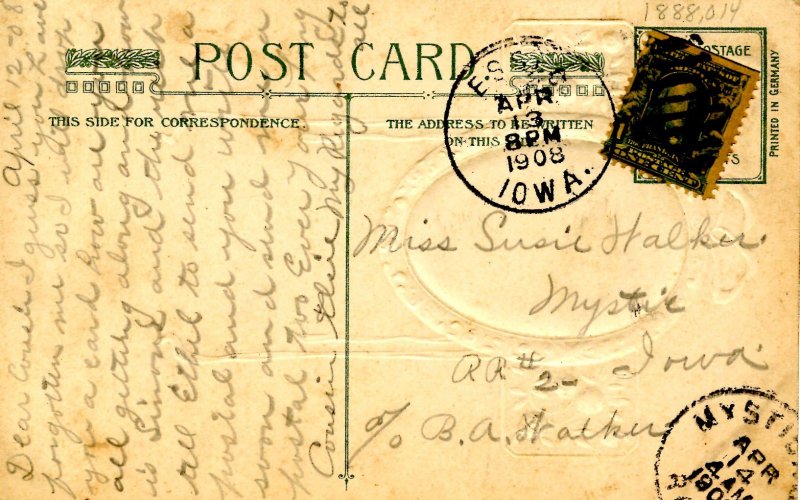 1888,014
POST CARD
THIS SIDE FOR CORRESPONDENCE.
THE ADDRESS TO BE WRITTEN
ON THIS SIDE
POSTAGE
PRINTED IN GERMANY
APR
13
8 PM
1908
IOWA.
Miss Susie Walker
Mystic
Iowa
RR # 2-
c/o B.A. Walker
MYSTIC
APR
14
4 AM
April 12-08
Dear Cousin I guess you have
forgotten me so I will
you a card how are you
all getting along and how
is Simon and the
tell Ethel to send me a
postal and you write
soon and send me a
postal too Ever your
Cousin
My Regards To
all